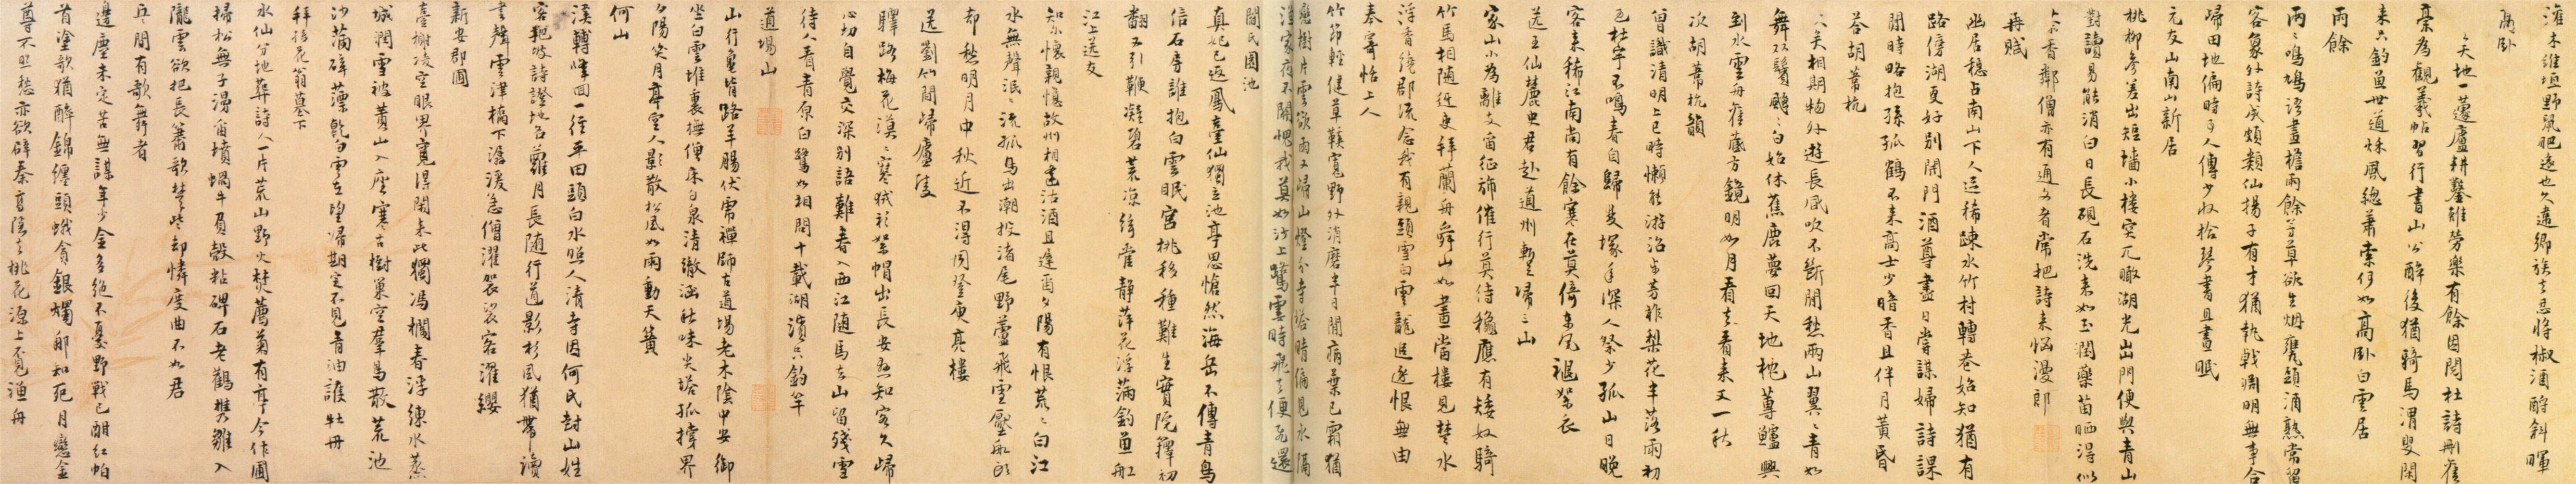 灌木維垣野鼠肥遠也久違鄉族去忍將椒酒酹斜暉
高卧
一笑天地一蘧廬耕鑿雖勞樂有餘因閱杜詩刪舊
藁為觀羲帖習行書山公醉後猶騎馬渭叟閑
来只釣魚世道秋風總蕭索何如高卧白雲居
雨餘
雨〻鳴鳩語畫檐雨餘芳草欲生烟甕頭酒熟常留
客象外詩成頗類仙揚子有才猶執戟淵明無事合
歸田地偏時事人傳少收拾琴書且晝眠
元友山南山新居
桃柳參差出短墻小樓突兀瞰湖光出門便與青山
對讀易能消白日長硯石洗来如玉潤藥苗晒得似
茶香鄰僧亦有通文者常把詩来惱漫郎
再賦
幽居穩占南山下人迹稀疎水竹村轉巷始知猶有
路傍湖更好別開門酒尊盡日嘗謀婦詩課
閒時略抱孫孤鶴不来高士少暗香且伴月黃昏
答胡葦杭
一笑相期物外遊長風吹不斷閒愁兩山翼〻青如
舞雙鬢颼〻白始休蕉鹿夢回天地枕蓴鱸興
到水雲舟舊藏方鏡明如月看去看来又一秋
次胡葦杭韻
曾識清明上巳時懶能游冶步芳菲梨花半落雨初
過杜宇不鳴春自歸雙塚年深人祭少孤山日晚
客来稀江南尚有餘寒在莫倚東風褪絮衣
送王仙麓史君赴道州暫歸三山
家山小為離支留征旆催行莫待穐應有矮奴騎
竹馬相随近吏拜蘭舟舜山如畫當樓見楚水
浮香繞郡流念我有親頭雪白雲龍追逐恨無由
奉寄恬上人
竹節輕健草鞵寬野外消磨半日閒病葉已霜猶
戀樹片雲欲雨又歸山燈分寺塔晴偏見水隔
漁家夜不關愧我莫如沙上鷺雲時飛去便飛還
閩民園池
真妃已返鳳臺仙獨立池亭思愴然海岳不傳青鳥
信石房誰抱白雲眠宮桃移種難生實院籜初
翻不引鞭凝碧荒凉絲管静萍花浮滿釣魚船
江上送友
知余懷親憶故州相逢沽酒且遲留夕陽有恨荒〻白江
水無聲泯〻流孤鳥出潮投渚尾野蘆飛雪壓船頭
却愁明月中秋近不得同登庾亮樓
送劉竹間歸廬陵
驛路梅花漠〻寒狨衫絮帽出長安熟知客久歸
心切自覺交深別語難春入西江随馬去山留殘雪
待人看青原白鷺如相問十載湖濱只釣竿
道場山
山行龜背路羊腸伏虎禪師古道場老木陰中安御
坐白雲堆裏撫僧床白泉清徹涵秋味尖塔孤撐界
夕陽笑月亭空人影散松風如雨動天簧
何山
溪轉峰回一徑平田頭白水照人清寺因何氏封山姓
客把坡詩證地名蘿月長随行道影杉風猶帶讀
書聲雲津橋下潺湲急僧濯袈裟客濯纓
新安郡圃
臺榭凌空眼界寬得閑来此獨馮欄春浮練水蒸
城潤雪被黃山入座寒古樹巢空羣鳥散荒池
沙滿碎萍乾白雲在望歸期定不見青油護牡丹
拜括花翁墓下
水仙分地葬詩人一片荒山野火焚薦菊有亭今作圃
掃松無子漫留墳蝸牛負殼粘碑石老鶴携雛入
隴雲欲把長簫歌楚些却憐度曲不如君
兵間有歌舞者
邊塵未定苦無謀年少金多絶不憂野戰已酣紅帕
首塗歌猶醉錦纏頭蛾貪銀燭那知死月戀金
尊不照愁亦欲辟秦尋隱去桃花源上覓漁舟